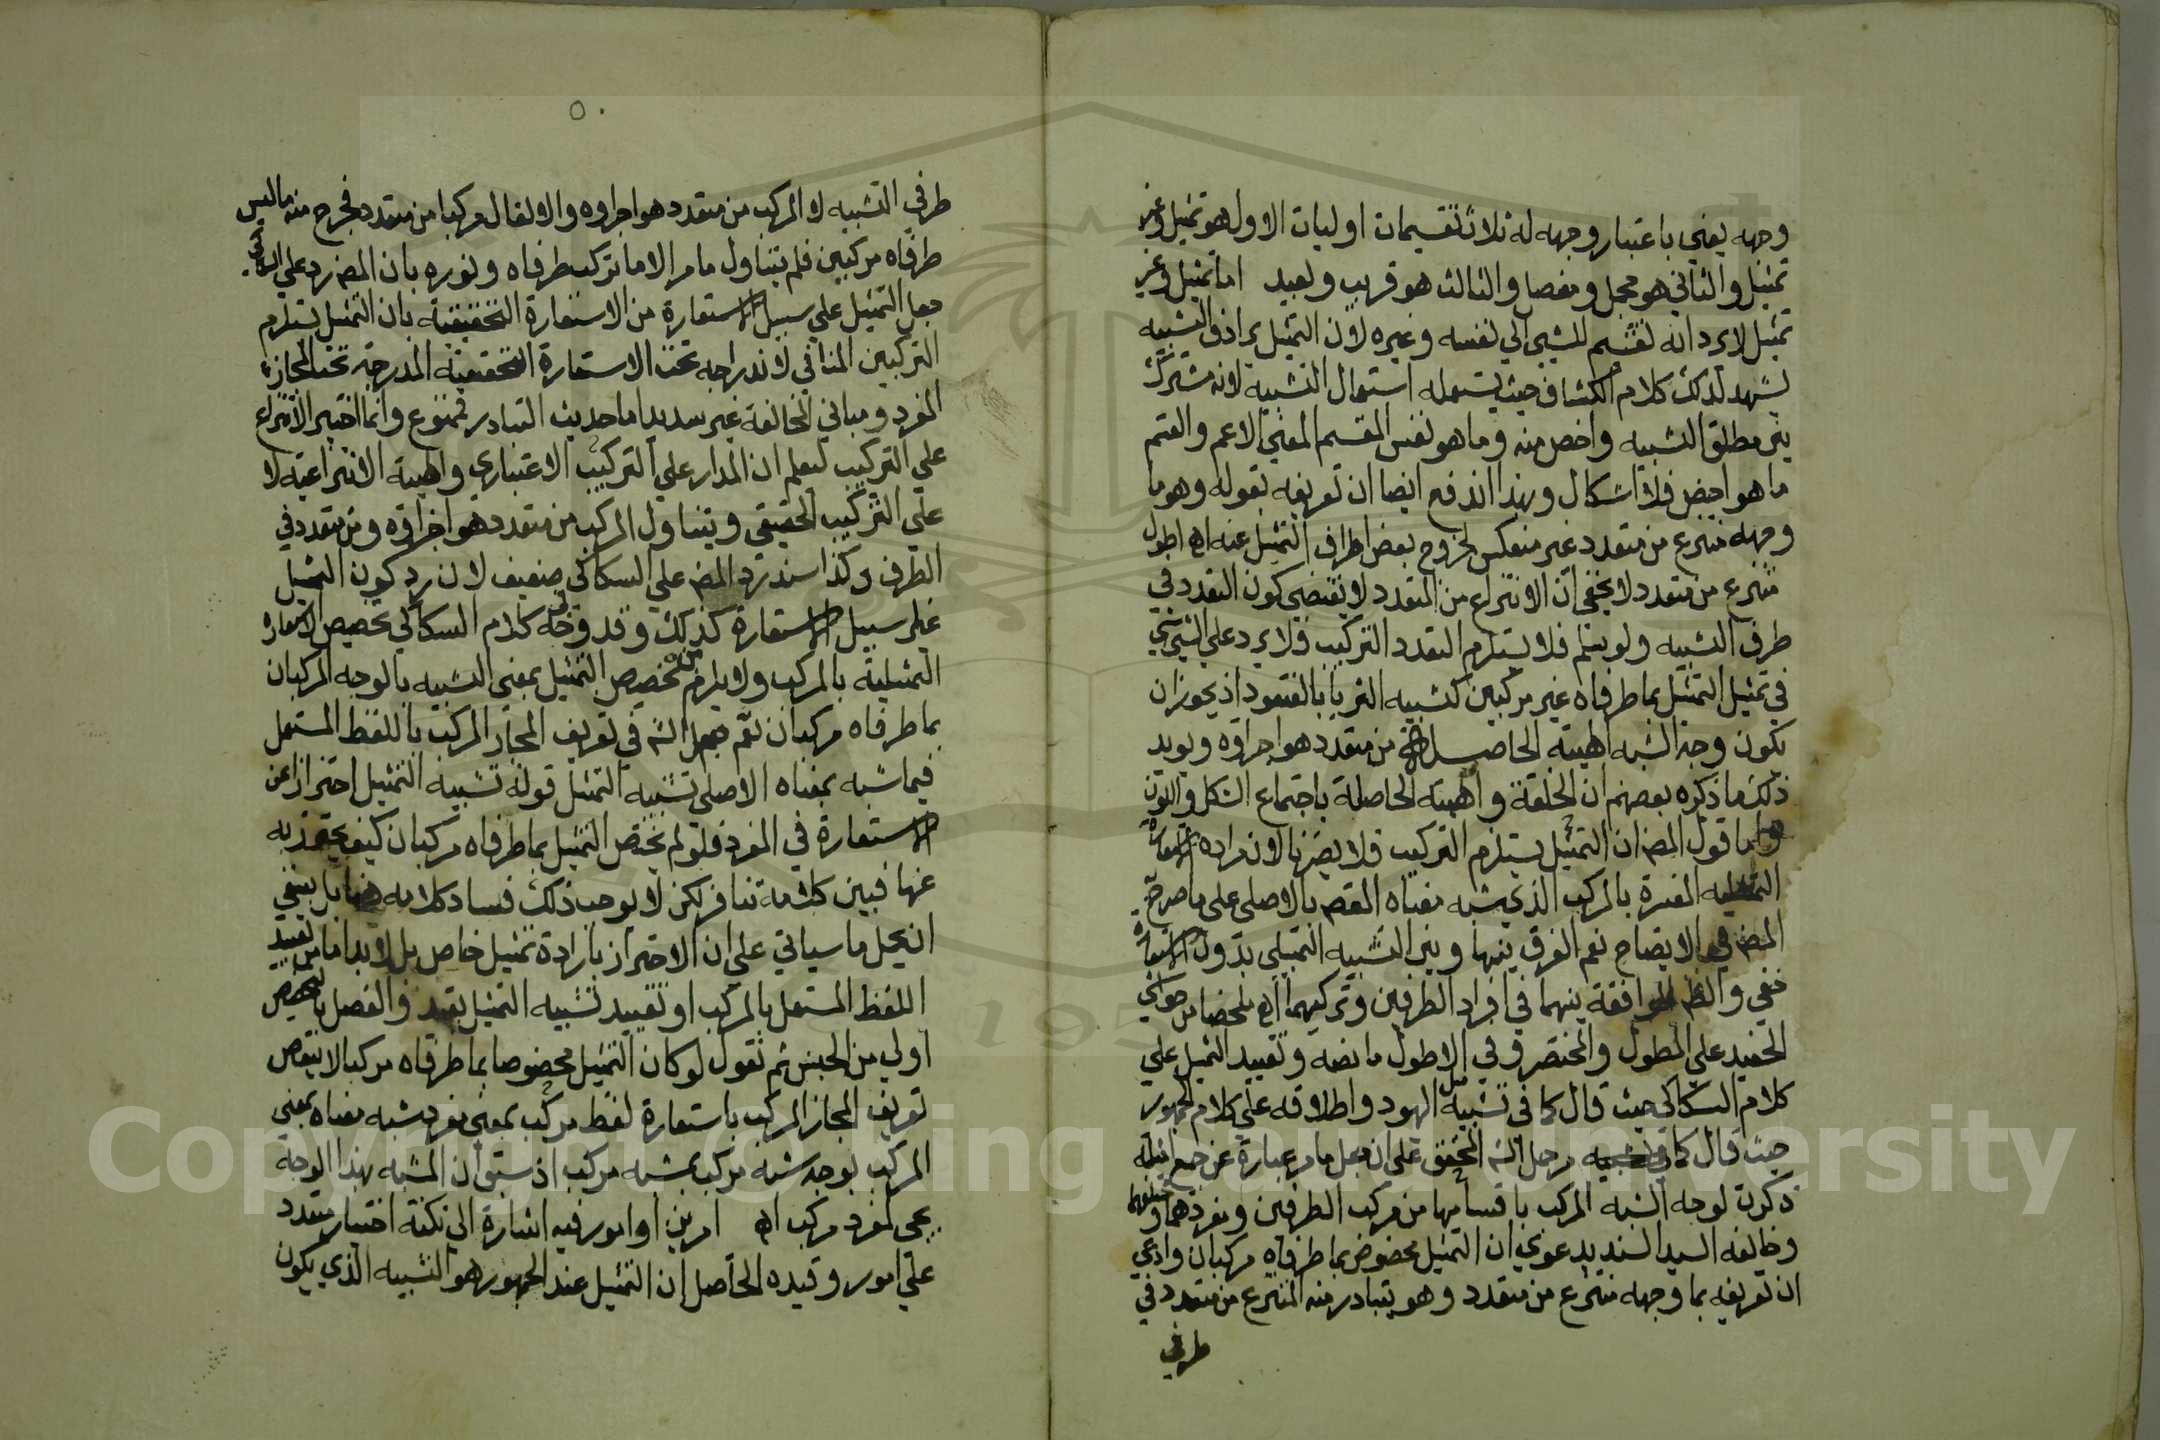 وجهه يعني باعتبار وجهه له ثلاث تقسيمات اوليات الاول هو تمثيل وغير
تمثيل والثاني هو مجمل ومفصل والثالث هو قريب وبعيد اما تمثيل وغير
تمثيل لا يرد انه تقسيم للشيء الي نفسه وغيره لان التمثيل يرادف التشبيه
يشهد لذلك كلام الكشاف حيث يستعمله استعمال التشبيه لانه مشترك
بين مطلق التشبيه واخص منه وما هو نفس المقسم المعني الاعم والقسم
ما هو اخص فلا اشكال وبهذا اندفع ايضا ان تعريفه بقوله وهو ما
وجهه منتزع من متعدد غير منعكس لخروج بعض اطراف التمثيل عنه اه اطول
منتزع من متعدد لا يخفي ان الانتزاع من المتعدد لا يقتضي كون التعدد في
طرف التشبيه ولو سلم فلا يستلزم التعدد التركيب فلا يرد علي الشيخ
في تمثيل التمثيل بما طرفاه غير مركبين كتشبيه الثريا بالعنقود اذ يجوز ان
يكون وجه الشبه الهيئة الحاصلة من متعدد هو اجزاؤه ويويد
ذلك ما ذكره بعضهم ان الخلقة والهيئة الحاصلة باجتماع الشكل واللون
واما قول المصـ ان التمثيل يستلزم التركيب فلا يضرنا لان مراده الاستعارة
التمثيلية المفسرة بالمركب الذي شبه معناه القصـ بالاصلي علي ما صرح به
المصـ في الايضاح نعم الفرق بينها وبين التشبيه التمثيلي بدون الاستعارة
خفي والظـ الموافقة بينهما في افراد الطرفين وتركيبهما اه ملخصا من حواشي
الحفيد علي المطول والمختصر وفي الاطول ما نصه وتقييد التمثيل علي
كلام السكاكي حيث قال كما في تشبيه مثل اليهود واطلاقه علي كلام الجمهور
حيث قال كما في تشبيه وحمل الشـ المحقق علي ان جعل ما مر عبارة عن جميع امثلة
ذكرت لوجه الشبه المركب باقسامها من مركب الطرفين ومفردهما ومختلفهما
وخالفه السيد السند بدعوي ان التمثيل مخصوص بما طرفاه مركبان وادعي
ان تعريفه بما وجهه منتزع من متعدد وهو يتبادر منه المنتزع من متعدد في
طرفي
٥٠
طرفي التشبيه لا المركب من متعدد هو اجزاؤه والا لقال مركبا من متعدد فخرج منه ما ليس
طرفاه مركبين فلم يتناول ما مر الا ما تركب طرفاه ونوره بان المصـ رد علي السكاكي
جعل التمثيل علي سبيل الاستعارة من الاستعارة التحقيقية بان التمثيل يستلزم
التركيب المنافي لاندراجه تحت الاستعارة التحقيقية المدرجة تحت المجاز
المفرد ومباني المخالفة غير سديد اما حديث التبادر فممنوع وانما اختير الانتزاع
علي التركيب ليعلم ان المدار علي التركيب الاعتباري والهيئة الانتزاعية لا
علي التركيب الحقيقي ويتناول المركب من متعدد هو اجزاؤه ومن متعدد في
الطرف وكذا سند رد المصـ علي السكاكي ضعيف لان رد كون التمثيل
علي سبيل الاستعارة كذلك وقد وجه كلام السكاكي تخصيص الاستعارة
التمثيلية بالمركب ولا يلزم من تخصيص التمثيل بمعني التشبيه بالوجه المركب ان
بما طرفاه مركبان نعم جعل الشـ في تعريف المجاز المركب باللفظ المستعمل
فيما شبه بمعناه الاصلي تشبيه التمثيل قوله تشبيه التمثيل احترازا عن
الاستعارة في المفرد فلو لم يختص التمثيل بما طرفاه مركبان كيف يحترز به
عنها فبين كلاميه تنافر لكن لا يوجب ذلك فساد كلامه هنا بل ينبغي
ان يحمل ما سياتي علي ان الاحتراز بارادة تمثيل خاص بل لا بد اما من تقييد
اللفظ المستعمل بالمركب او تقييد تشبيه التمثيل بقيد والفصل بالتخصيص
اولي من الجنس ثم نقول لو كان التمثيل مخصوصا بما طرفاه مركبا لا ينتقض
تعريف المجاز المركب باستعارة لفظ مركب بمعني مفرد شبه معناه بمعني
المركب بوجه شبه مركب بشبه مركب اذ سبق ان المشبه بهذا الوجه
يجي لمفرد مركب اه امرين او امور فيه اشارة الي نكتة اختيار متعدد
علي امور وقيده الحاصل ان التمثيل عند الجمهور هو التشبيه الذي يكون
Copyright © King Saud University
195